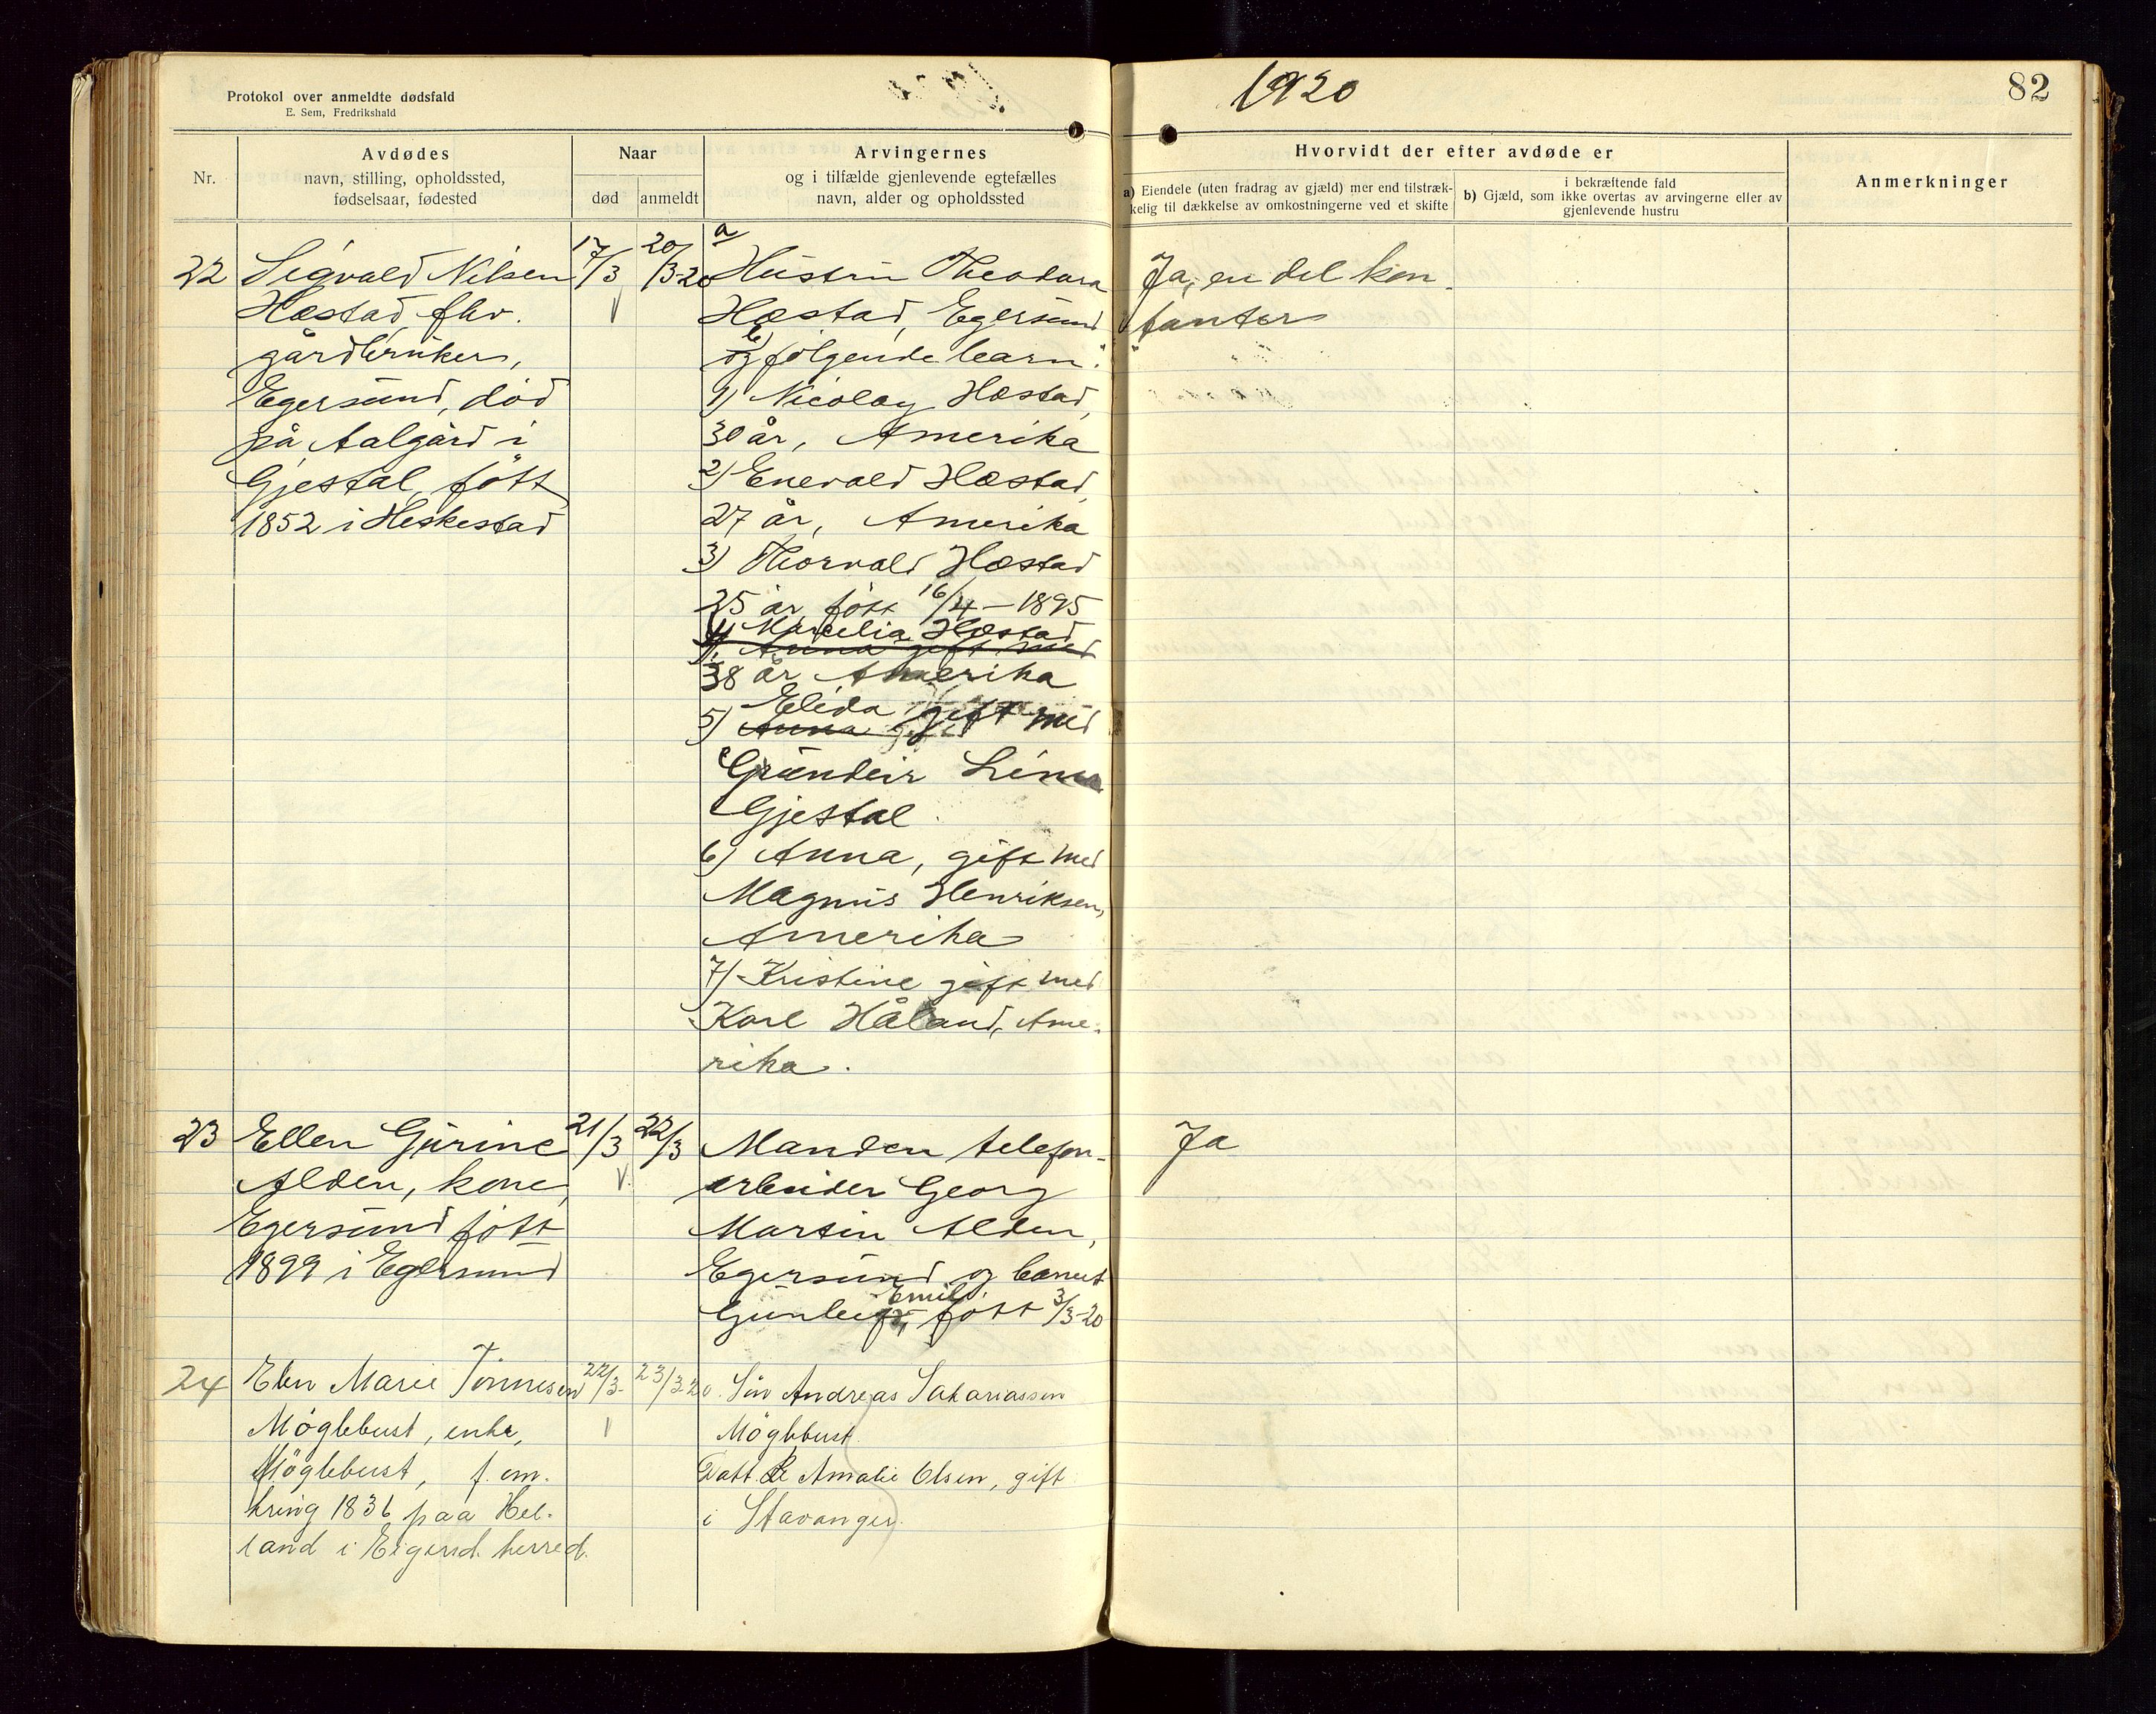 Protokol over anmeldte dødsfald
E. Sem, Fredrikshald
1920
82
Nr.
Avdødes
navn, stilling, opholdssted,
fødselsaar, fødested
Naar
død
anmeldt
Arvingernes
og i tilfælde gjenlevende egtefælles
navn, alder og opholdssted
Hvorvidt der efter avdøde er
a) Eiendele (uten fradrag av gjæld) mer end tilstræk-
kelig til dækkelse av omkostningerne ved et skifte
i bekræftende fald
b) Gjæld, som ikke overtas av arvingerne eller av
gjenlevende hustru
Anmerkninger
22
Sigvald Nilsen
Hæstad, fhv.
gårdbruker,
Egersund, død
på Aalgård i
Gjestal, født
1852 i Heskestad
17/3
20/3-20
a
Hustru Theodora
Hæstad, Egersund
b)
og følgende barn:
1) Nicolay Hæstad,
30 år, Amerika
2) Enevald Hæstad,
27 år, Amerika
3) Thorvald Hæstad
25 år født 16/4-1895
4) Marselia Hæstad
Anna gift med
38 år Amerika
Elida gift med
5) Anna
Gundeir Lima
Gjestal
6) Anna, gift med
Magnus Henriksen,
Amerika
7) Kristine gift med
Karl Håland, Ame-
rika.
Ja, en del kon-
tanter
23
Ellen Gurine
Alden, kone,
Egersund født
1899 i Egersund
21/3
22/3
Manden telefon-
arbeider Georg
Martin Alden,
Egersund og barnet
Emil
Gunleif, født 3/3-20
Ja
24
Elen Marie Tönnesen
Möglebust, enke,
Möglebust, f. om-
kring 1836 paa Hel-
land i Eigersd. herred.
22/3-
23/3-20
Sön Andreas Sakariassen
Möglebust
Datt. Amalie Olsen, gift
i Stavanger.